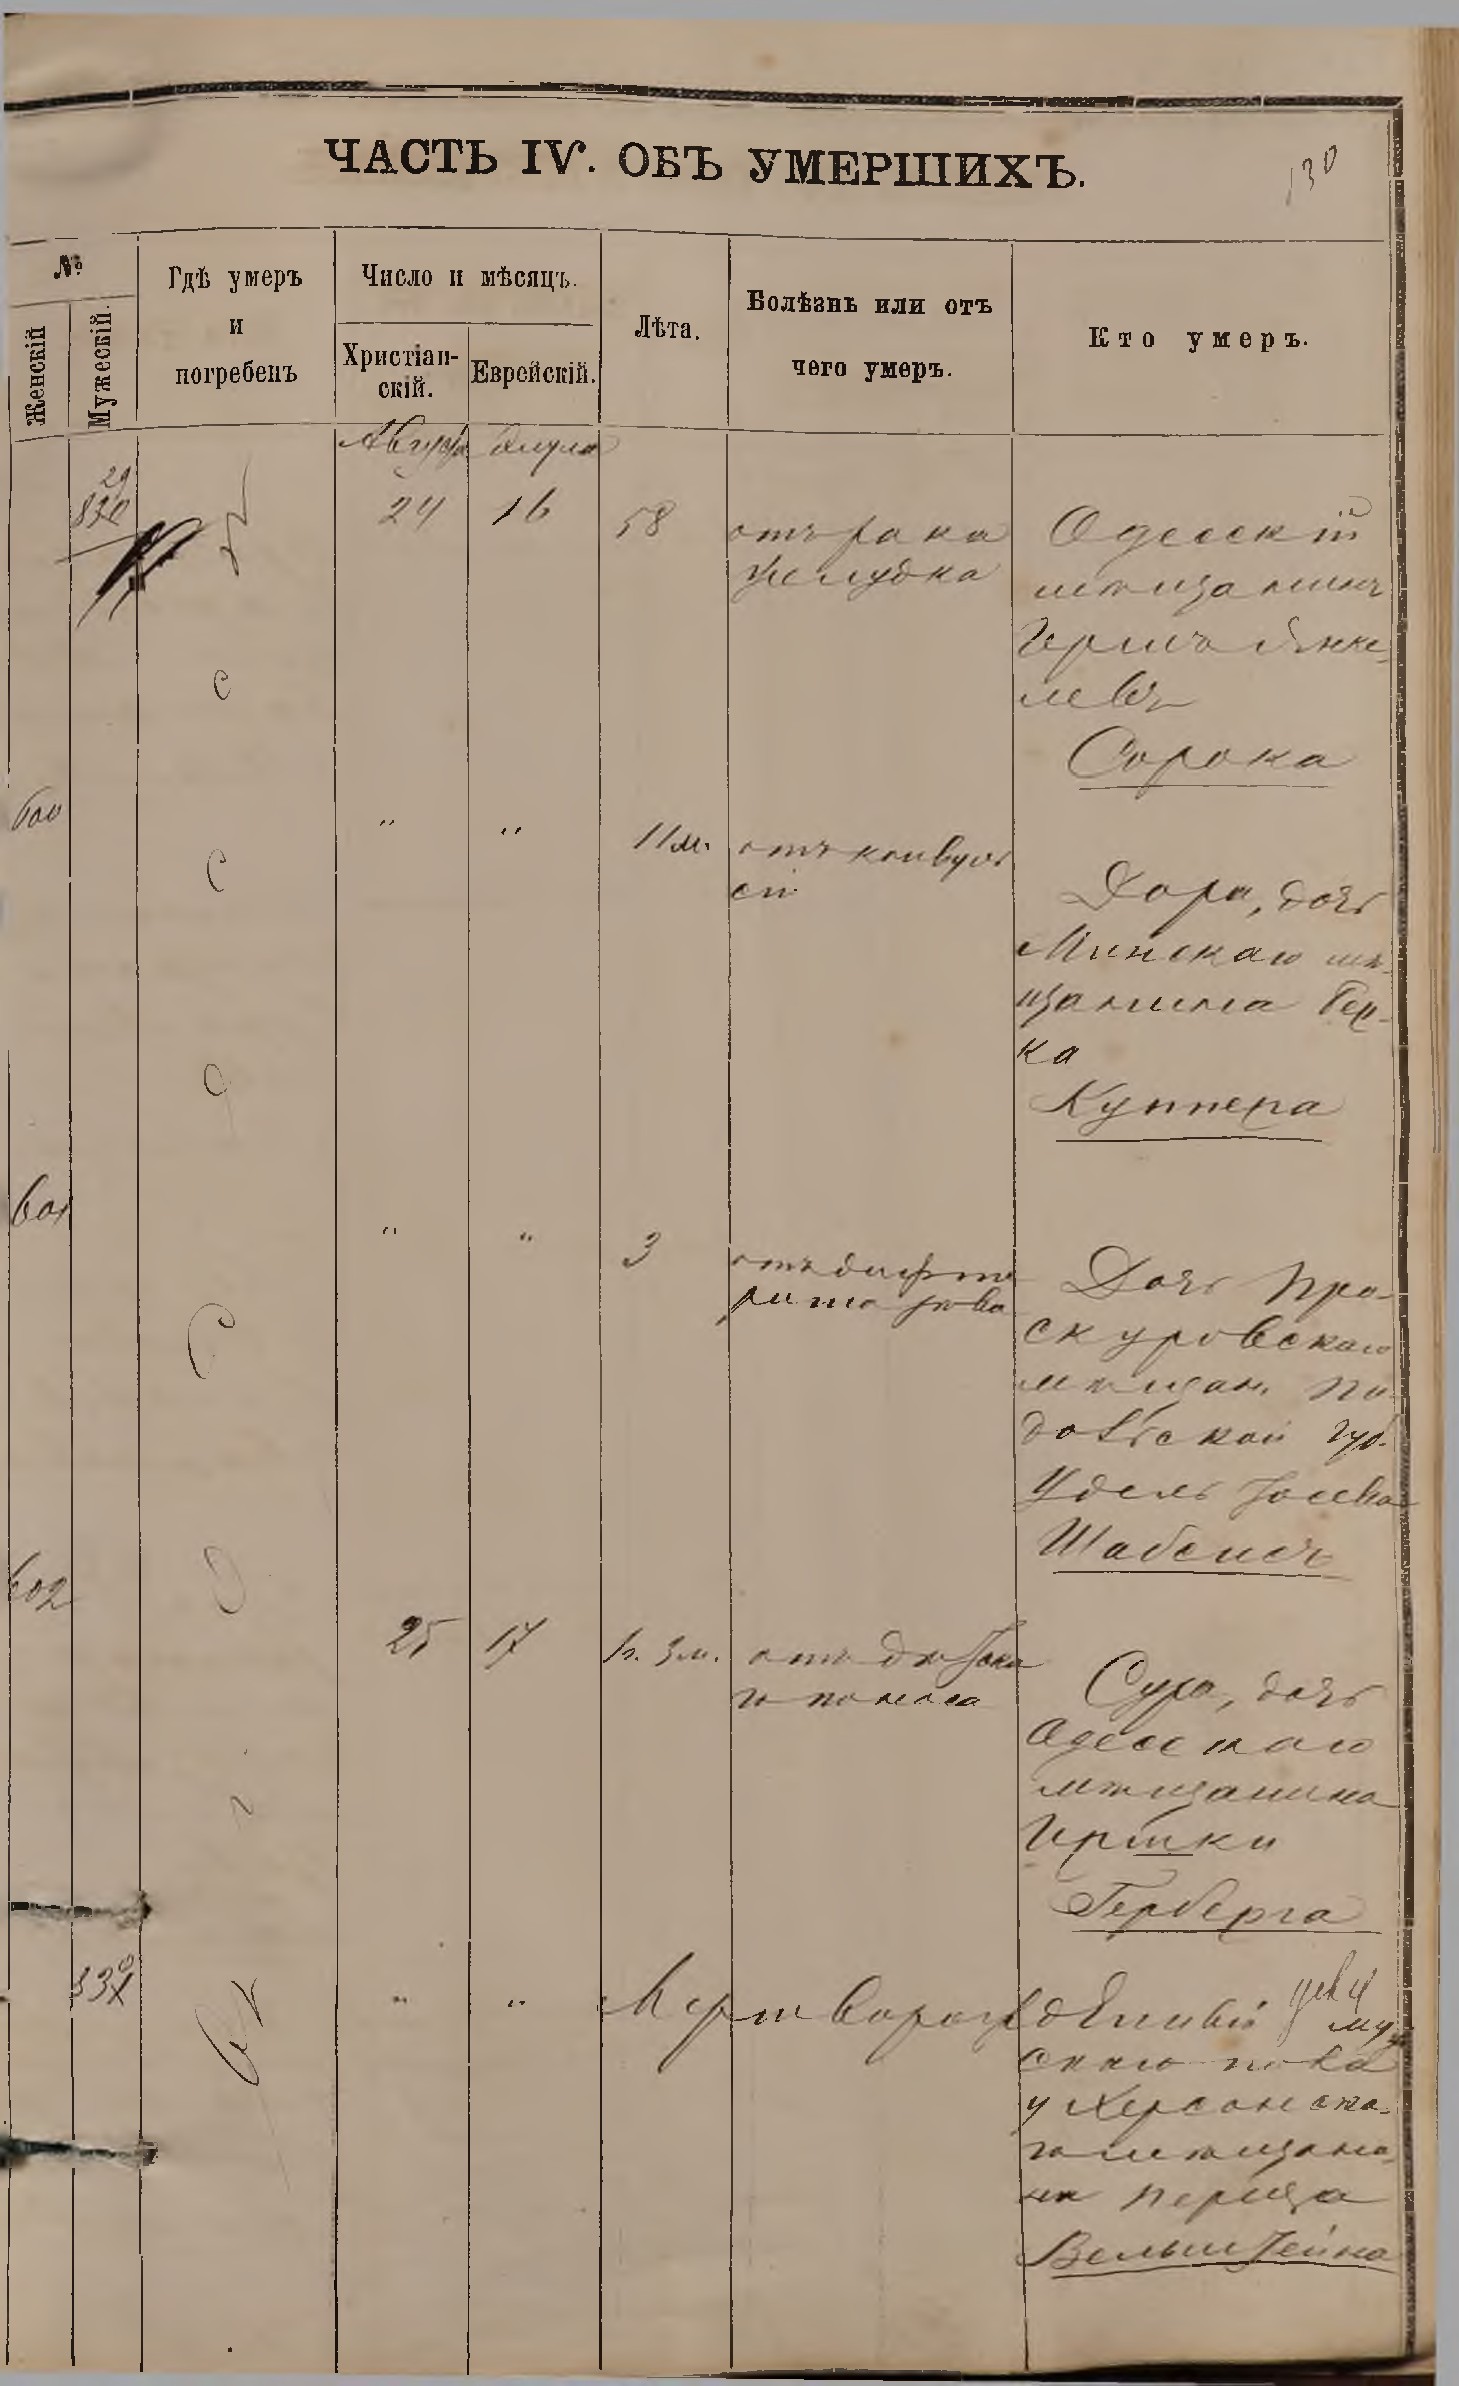 ЧАСТЬ IV. ОБЪ УМЕРШИХЪ.
130
№
Женскій
Мужескій.
Гдѣ умеръ
и
погребенъ
Число и мѣсяцъ.
Христіан-
скій.
Еврейскій.
Лѣта.
Болѣзнь или отъ
чего умеръ.
Кто умеръ.
Августа
Элула
29
830
24
16
58
отъ рака
желудка
Одесскій
мѣщанинъ
Гершъ Янке-
левъ
Сорока
600
"
"
11 м.
отъ конвуль
сій
Дора, дочь
Минскаго мѣ-
щанина Бер-
ка
Куппера
601
"
"
3
отъ дифте
рита зѣва
Дочь Про-
скуровскаго
мѣщан. По-
дольской губ.
Удель Іосева
Шабсисъ
602
25
17
1 г. 3 м.
отъ дѣтска
го поноса
Сура, дочь
Одесскаго
мѣщанина
Гершки
Герберга
В ъ О д е с с ѣ
"
"
Мертворожденный
муж
скаго пола
у Херсонска-
го мѣщани-
на Переца
Вельштейна